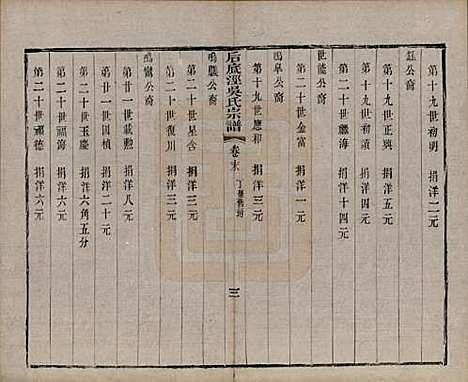 鈺公裔
第十九世初明　捐洋二元
第十九世正興　捐洋五元
第十九世初讀　捐洋四元
第二十世繼海　捐洋十四元
世能公裔
第二十世金富　捐洋一元
鳴皋公裔
第十九世應和　捐洋三元
后底涇吳氏宗譜
卷末
三
鳴嶽公裔
第二十世星含　捐洋三元
第二十世復川　捐洋三元
鳴鸞公裔
第廿一世載勳　捐洋八元
第廿一世因楨　捐洋二十元
第二十世玉慶　捐洋六角五分
第二十世福海　捐洋六元
第二十世福德　捐洋六元